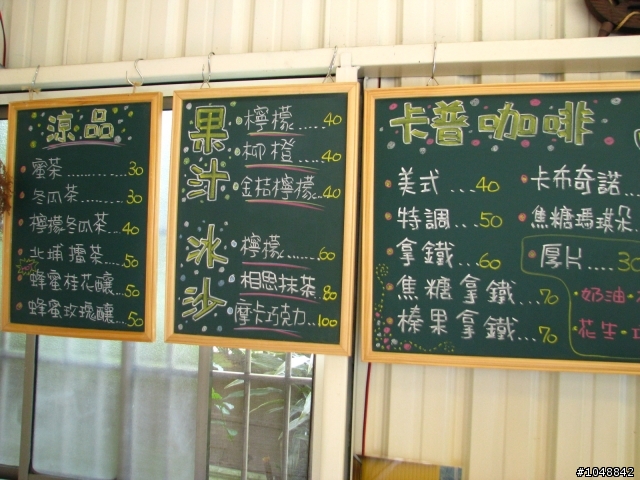 涼品
蜜茶............30
冬瓜茶........30
檸檬冬瓜茶...40
北埔擂茶......50
蜂蜜桂花釀...50
蜂蜜玫瑰釀...50
果汁
檸檬......40
柳橙......40
金桔檸檬...40
冰沙
檸檬......60
相思抹茶 80
摩卡巧克力...100
卡普咖啡
美式...40
特調...50
拿鐵...60
焦糖拿鐵...70
榛果拿鐵...70
卡布奇諾...
焦糖瑪琪朵
厚片....30
奶油·
花生·
#1048842